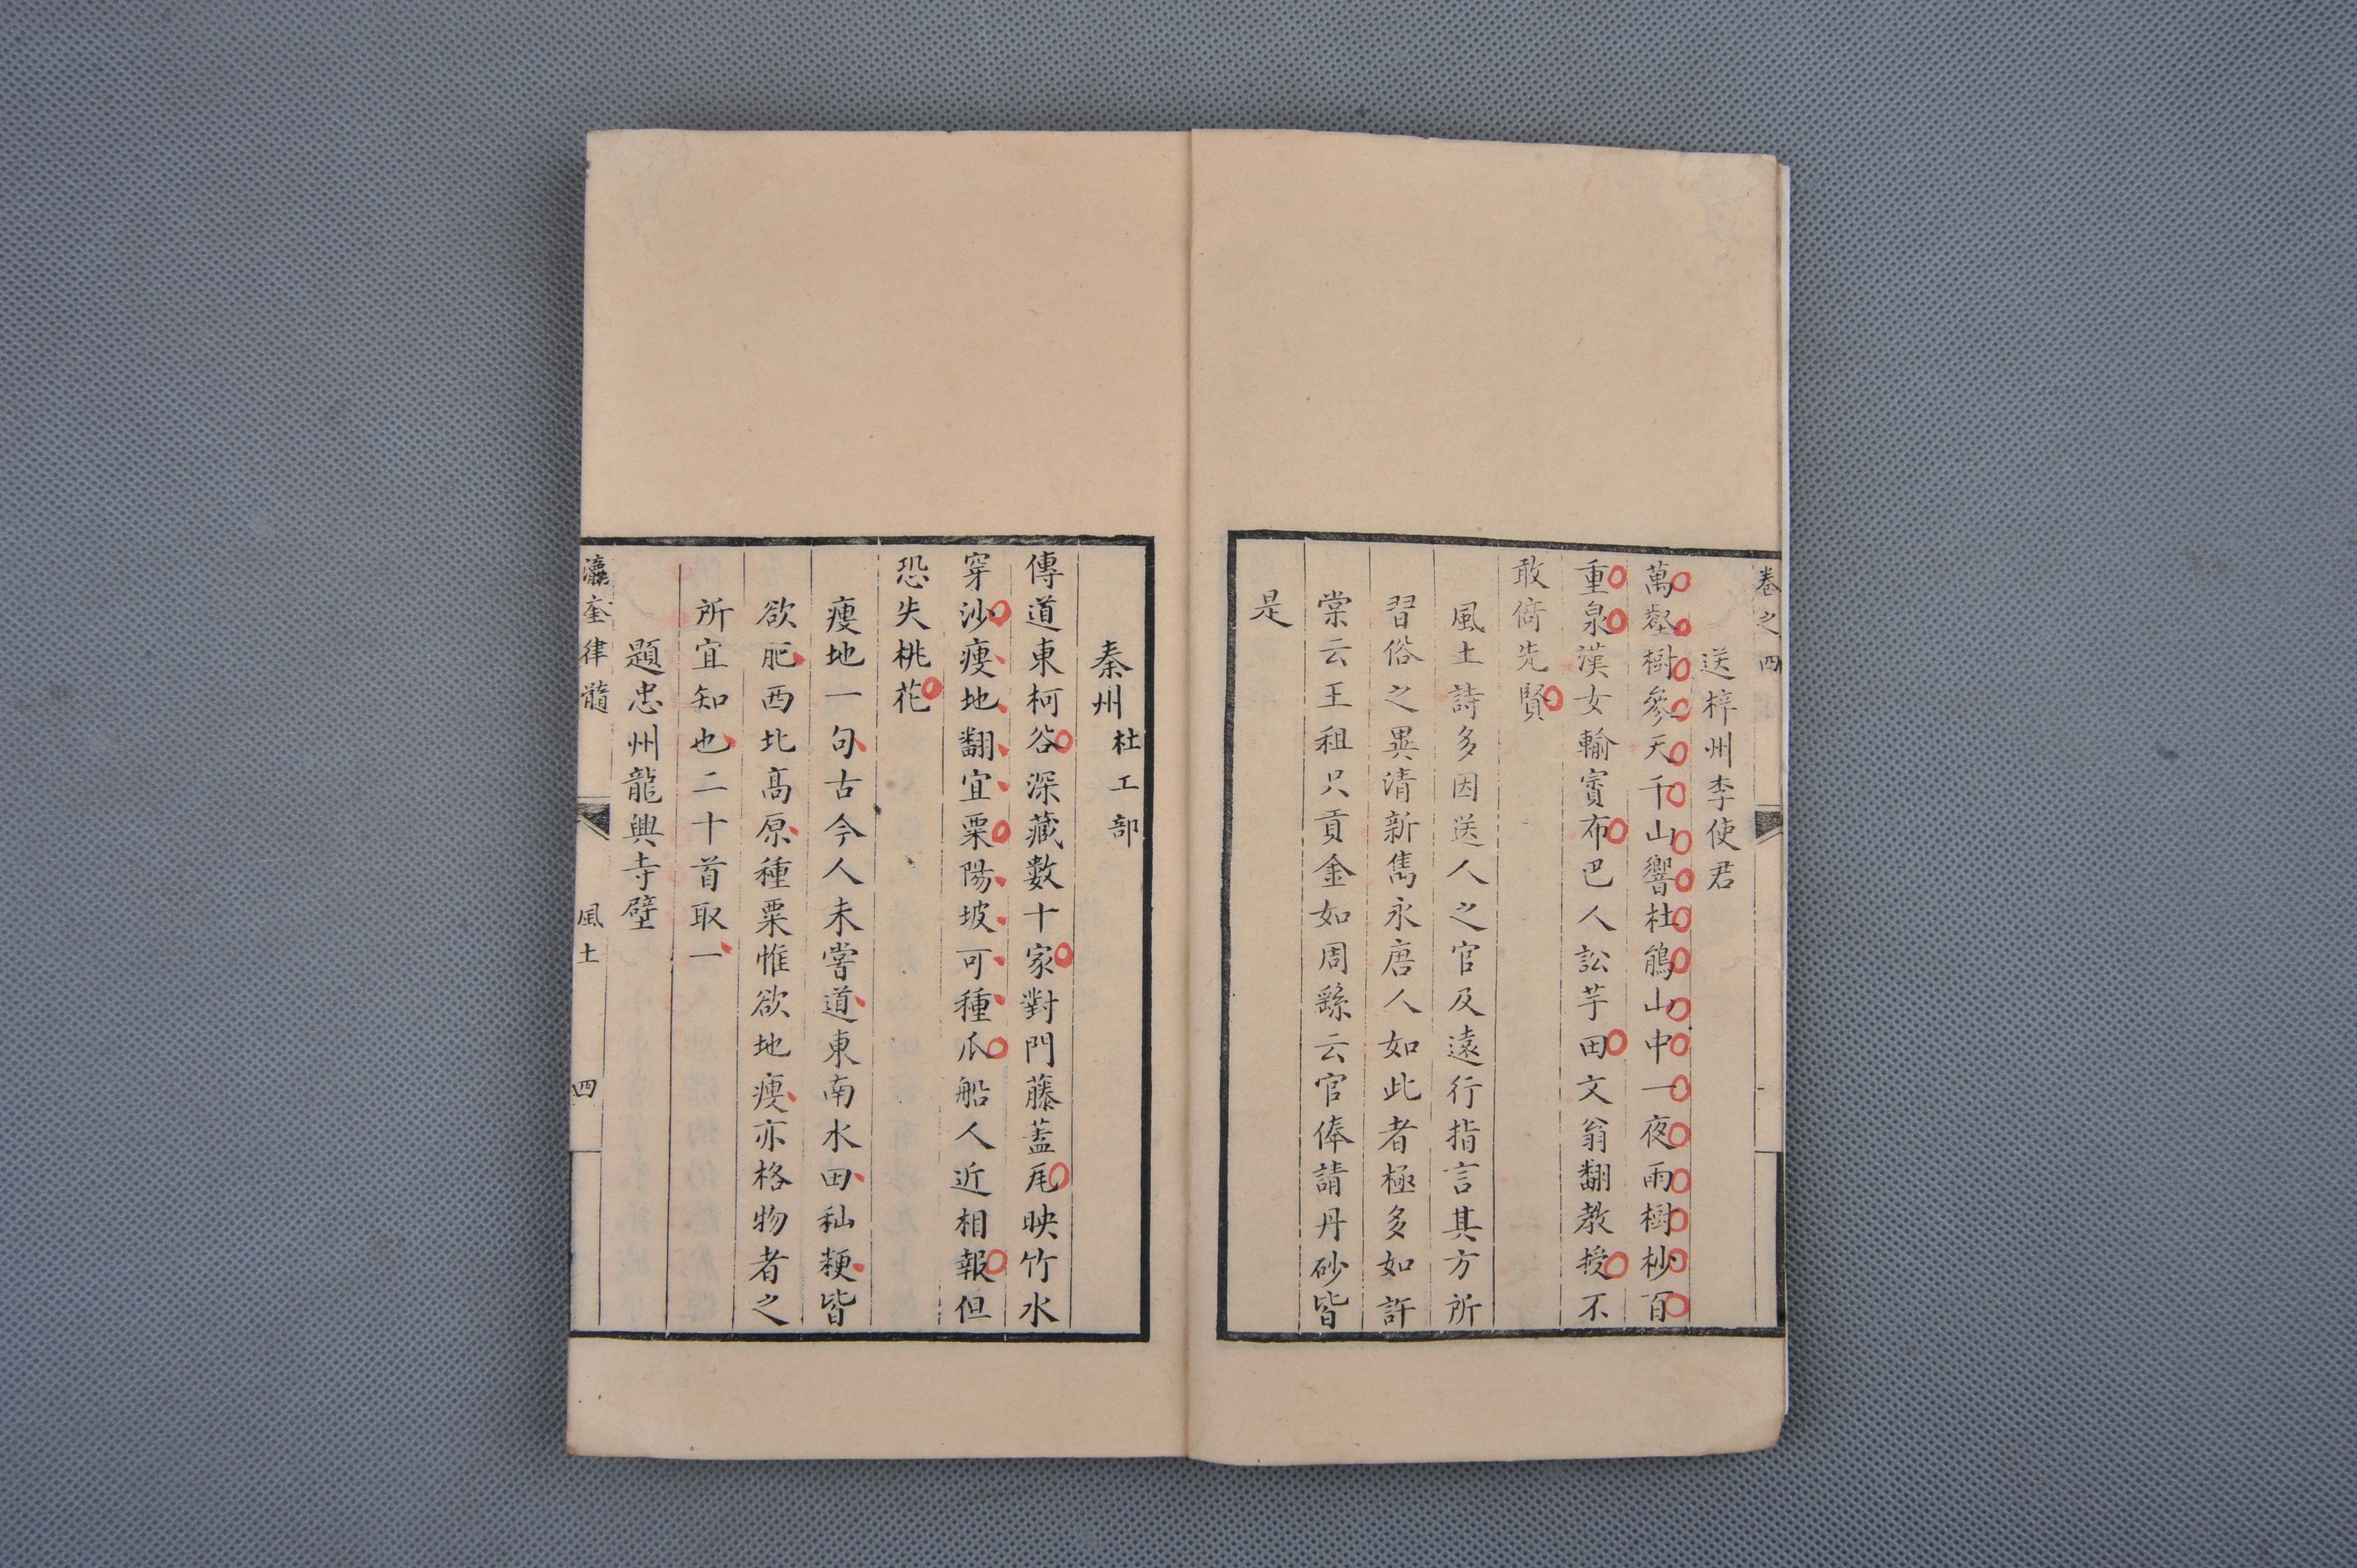 卷之四
送梓州李使君
萬壑樹參天千山響杜鵑山中一夜雨樹杪百
重泉漢女輸賨布巴人訟芋田文翁翻教授不
敢倚先賢
風土詩多因送人之官及遠行指言其方所
習俗之異清新雋永唐人如此者極多如許
棠云王租只貢金如周繇云官俸請丹砂皆
是
秦州 杜工部
傳道東柯谷深藏數十家對門藤蓋瓦映竹水
穿沙瘦地翻宜粟陽坡可種瓜船人近相報但
恐失桃花
瘦地一句古今人未嘗道東南水田秈粳皆
欲肥西北高原種粟惟欲地瘦亦格物者之
所宜知也二十首取一
題忠州龍興寺壁
瀛奎律髓 風土 四